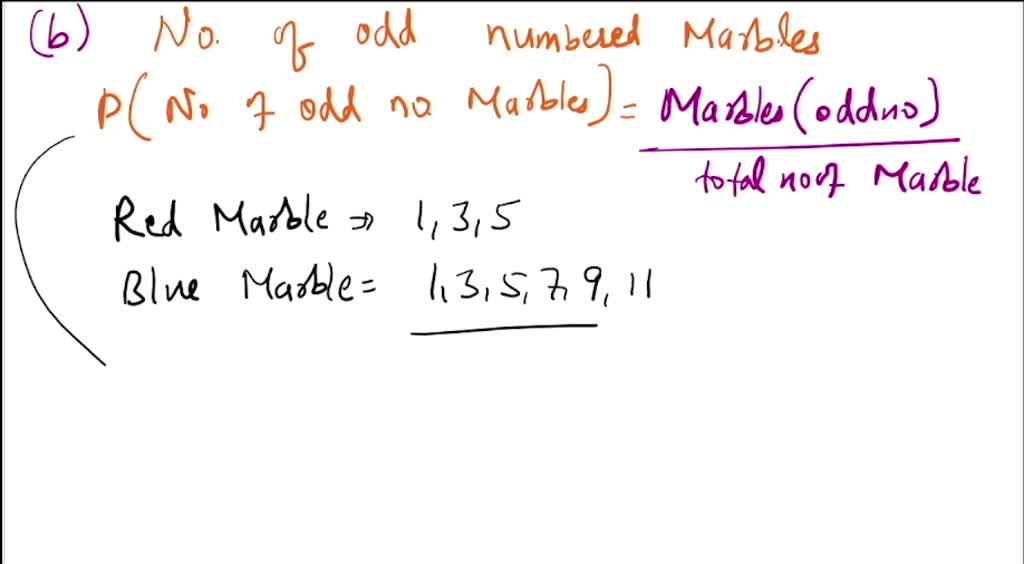 (b) No. of odd numbered Marbles
P( No of odd no. Marbles) = Marbles (odd no)
total no of Marble
Red Marble ⇒ 1, 3, 5
Blue Marble = 1, 3, 5, 7, 9, 11